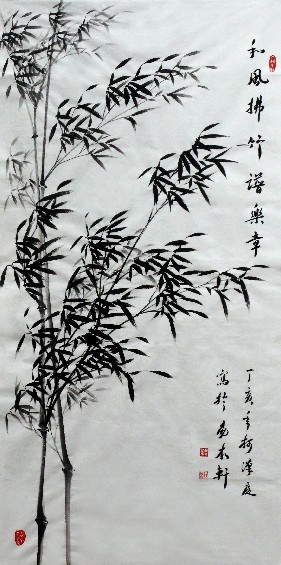 和風拂竹譜樂章
丁亥年柯漢庭
寫於南木軒